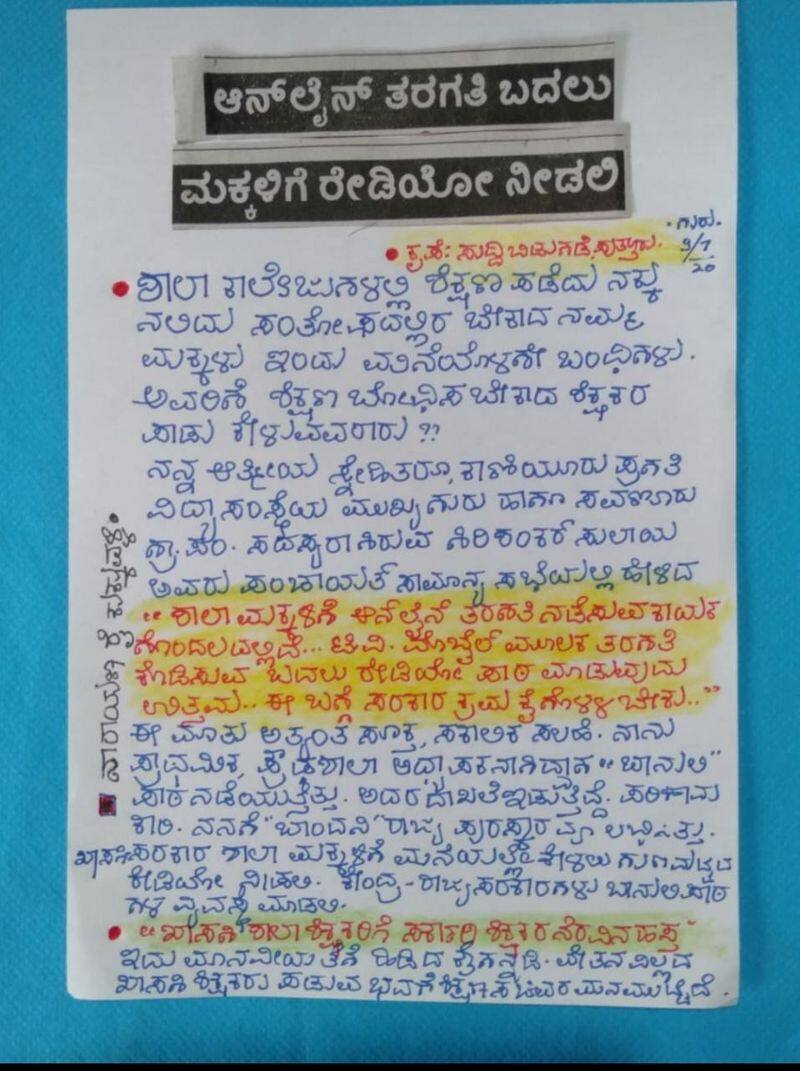 ಆನ್‌ಲೈನ್ ತರಗತಿ ಬದಲು
ಮಕ್ಕಳಿಗೆ ರೇಡಿಯೋ ನೀಡಲಿ
• ಗುರು.
9/7
20
• ಕೃಪೆ: ಸುದ್ದಿ ಬಿಡುಗಡೆ, ಪುತ್ತೂರು.
• ಶಾಲಾ ಕಾಲೇಜುಗಳಲ್ಲಿ ಶಿಕ್ಷಣ ಪಡೆದು ನಕ್ಕು
ನಲಿದು ಸಂತೋಷದಲ್ಲಿರ ಬೇಕಾದ ನಮ್ಮ
ಮಕ್ಕಳು ಇಂದು ಮನೆಯೊಳಗೇ ಬಂಧಿಗಳು.
ಅವರಿಗೆ ಶಿಕ್ಷಣ ಬೋಧಿಸ ಬೇಕಾದ ಶಿಕ್ಷಕರ
ಪಾಡು ಕೇಳುವವರಾರು ??
ನನ್ನ ಆತ್ಮೀಯ ಸ್ನೇಹಿತರೂ, ಕಾಣಿಯೂರು ಪ್ರಗತಿ
ವಿದ್ಯಾಸಂಸ್ಥೆಯ ಮುಖ್ಯಗುರು ಹಾಗೂ ಸವಣೂರು
ಗ್ರಾ. ಪಂ. ಸದಸ್ಯರಾಗಿರುವ ಗಿರಿಶಂಕರ್ ಸುಲಾಯ
ಅವರು ಪಂಚಾಯತ್ ಸಾಮಾನ್ಯ ಸಭೆಯಲ್ಲಿ ಹೇಳಿದ
" ಶಾಲಾ ಮಕ್ಕಳಿಗೆ ಆನ್‌ಲೈನ್ ತರಗತಿ ನಡೆಸುವ ಕಾಯಕ
ಗೊಂದಲದಲ್ಲಿದೆ... ಟಿ.ವಿ. ಮೊಬೈಲ್ ಮೂಲಕ ತರಗತಿ
ಕೊಡಿಸುವ ಬದಲು ರೇಡಿಯೋ ಪಾಠ ಮಾಡುವುದು
ಉತ್ತಮ.. ಈ ಬಗ್ಗೆ ಸರಕಾರ ಕ್ರಮ ಕೈಗೊಳ್ಳ ಬೇಕು.."
ಈ ಮಾತು ಅತ್ಯಂತ ಸೂಕ್ತ, ಸಕಾಲಿಕ ಸಲಹೆ. ನಾನು
ಪ್ರಾಥಮಿಕ, ಪ್ರೌಢಶಾಲಾ ಅಧ್ಯಾಪಕನಾಗಿದ್ದಾಗ "ಬಾನುಲಿ"
ಪಾಠ ನಡೆಯುತ್ತಿತ್ತು. ಅದರ ದಾಖಲೆ ಇಡುತ್ತಿದ್ದೆ. ಪರಿಣಾಮ
ಕಾರಿ. ನನಗೆ "ಚಾಂದನಿ" ರಾಜ್ಯ ಪುರಸ್ಕಾರವೂ ಲಭಿಸಿತ್ತು.
ಖಾಸಗಿ ಸರಕಾರ ಶಾಲಾ ಮಕ್ಕಳಿಗೆ ಮನೆಯಲ್ಲೇ ಕೇಳಲು ಗುಣಮಟ್ಟದ
ರೇಡಿಯೋ ನೀಡಲಿ. ಕೇಂದ್ರ - ರಾಜ್ಯ ಸರಕಾರಗಳು ಬಾನುಲಿ ಪಾಠ
ಗಳ ವ್ಯವಸ್ಥೆ ಮಾಡಲಿ.
• " ಖಾಸಗಿ ಶಾಲಾ ಶಿಕ್ಷಕರಿಗೆ ಸರ್ಕಾರಿ ಶಿಕ್ಷಕರ ನೆರವಿನ ಹಸ್ತ"
ಇದು ಮಾನವೀಯತೆಗೆ ಹಿಡಿದ ಕೈಗನ್ನಡಿ. ವೇತನವಿಲ್ಲದ
ಖಾಸಗಿ ಶಿಕ್ಷಕರು ಪಡುವ ಬವಣೆ ಶಿಕ್ಷಣ ಸಚಿವರ ಮನಮುಟ್ಟಿದೆ.
ನಾರಾಯಣ ರೈ ಕುಕ್ಕುವಳ್ಳಿ.